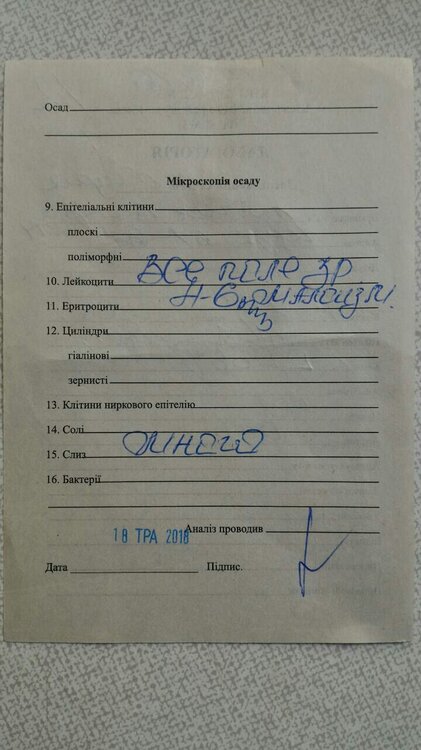 Осад
Мікроскопія осаду
9. Епітеліальні клітини
плоскі
поліморфні
10. Лейкоцити все поле зр
11. Еритроцити 4-6
12. Циліндри
гіалінові
зернисті
13. Клітини ниркового епітелію
14. Солі
15. Слиз много
16. Бактерії
Аналіз проводив
18 ТРА 2018
Дата Підпис.